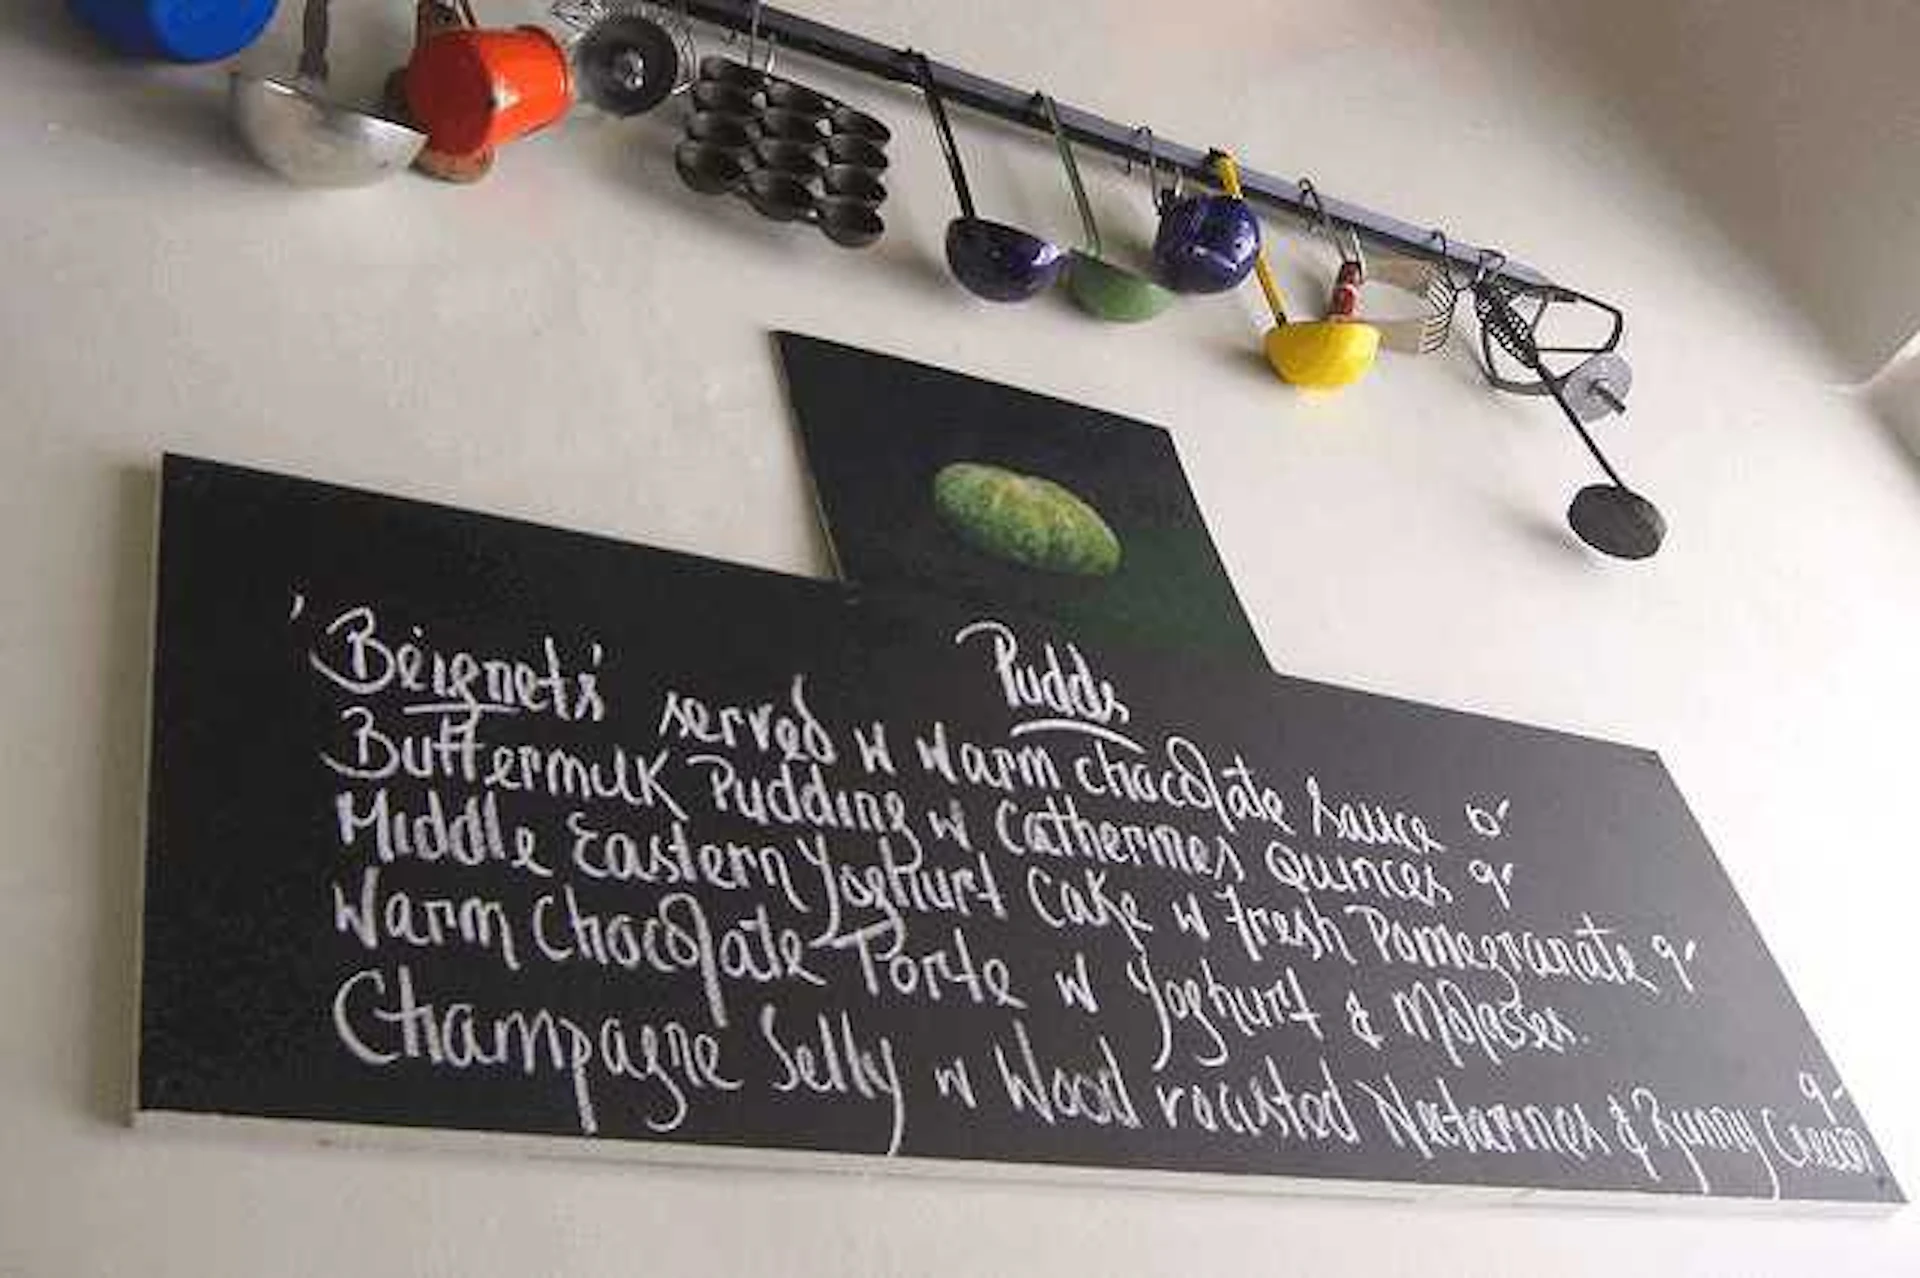 Pudds
'Beignets' served w warm chocolate sauce
Buttermilk Pudding w Catherines Quinces 9-
Middle Eastern Yoghurt Cake w fresh Pomegranate 9-
Warm Chocolate Torte w Yoghurt & Molasses.
Champagne Jelly w Wood roasted Nectarines & Runny Cream 9-